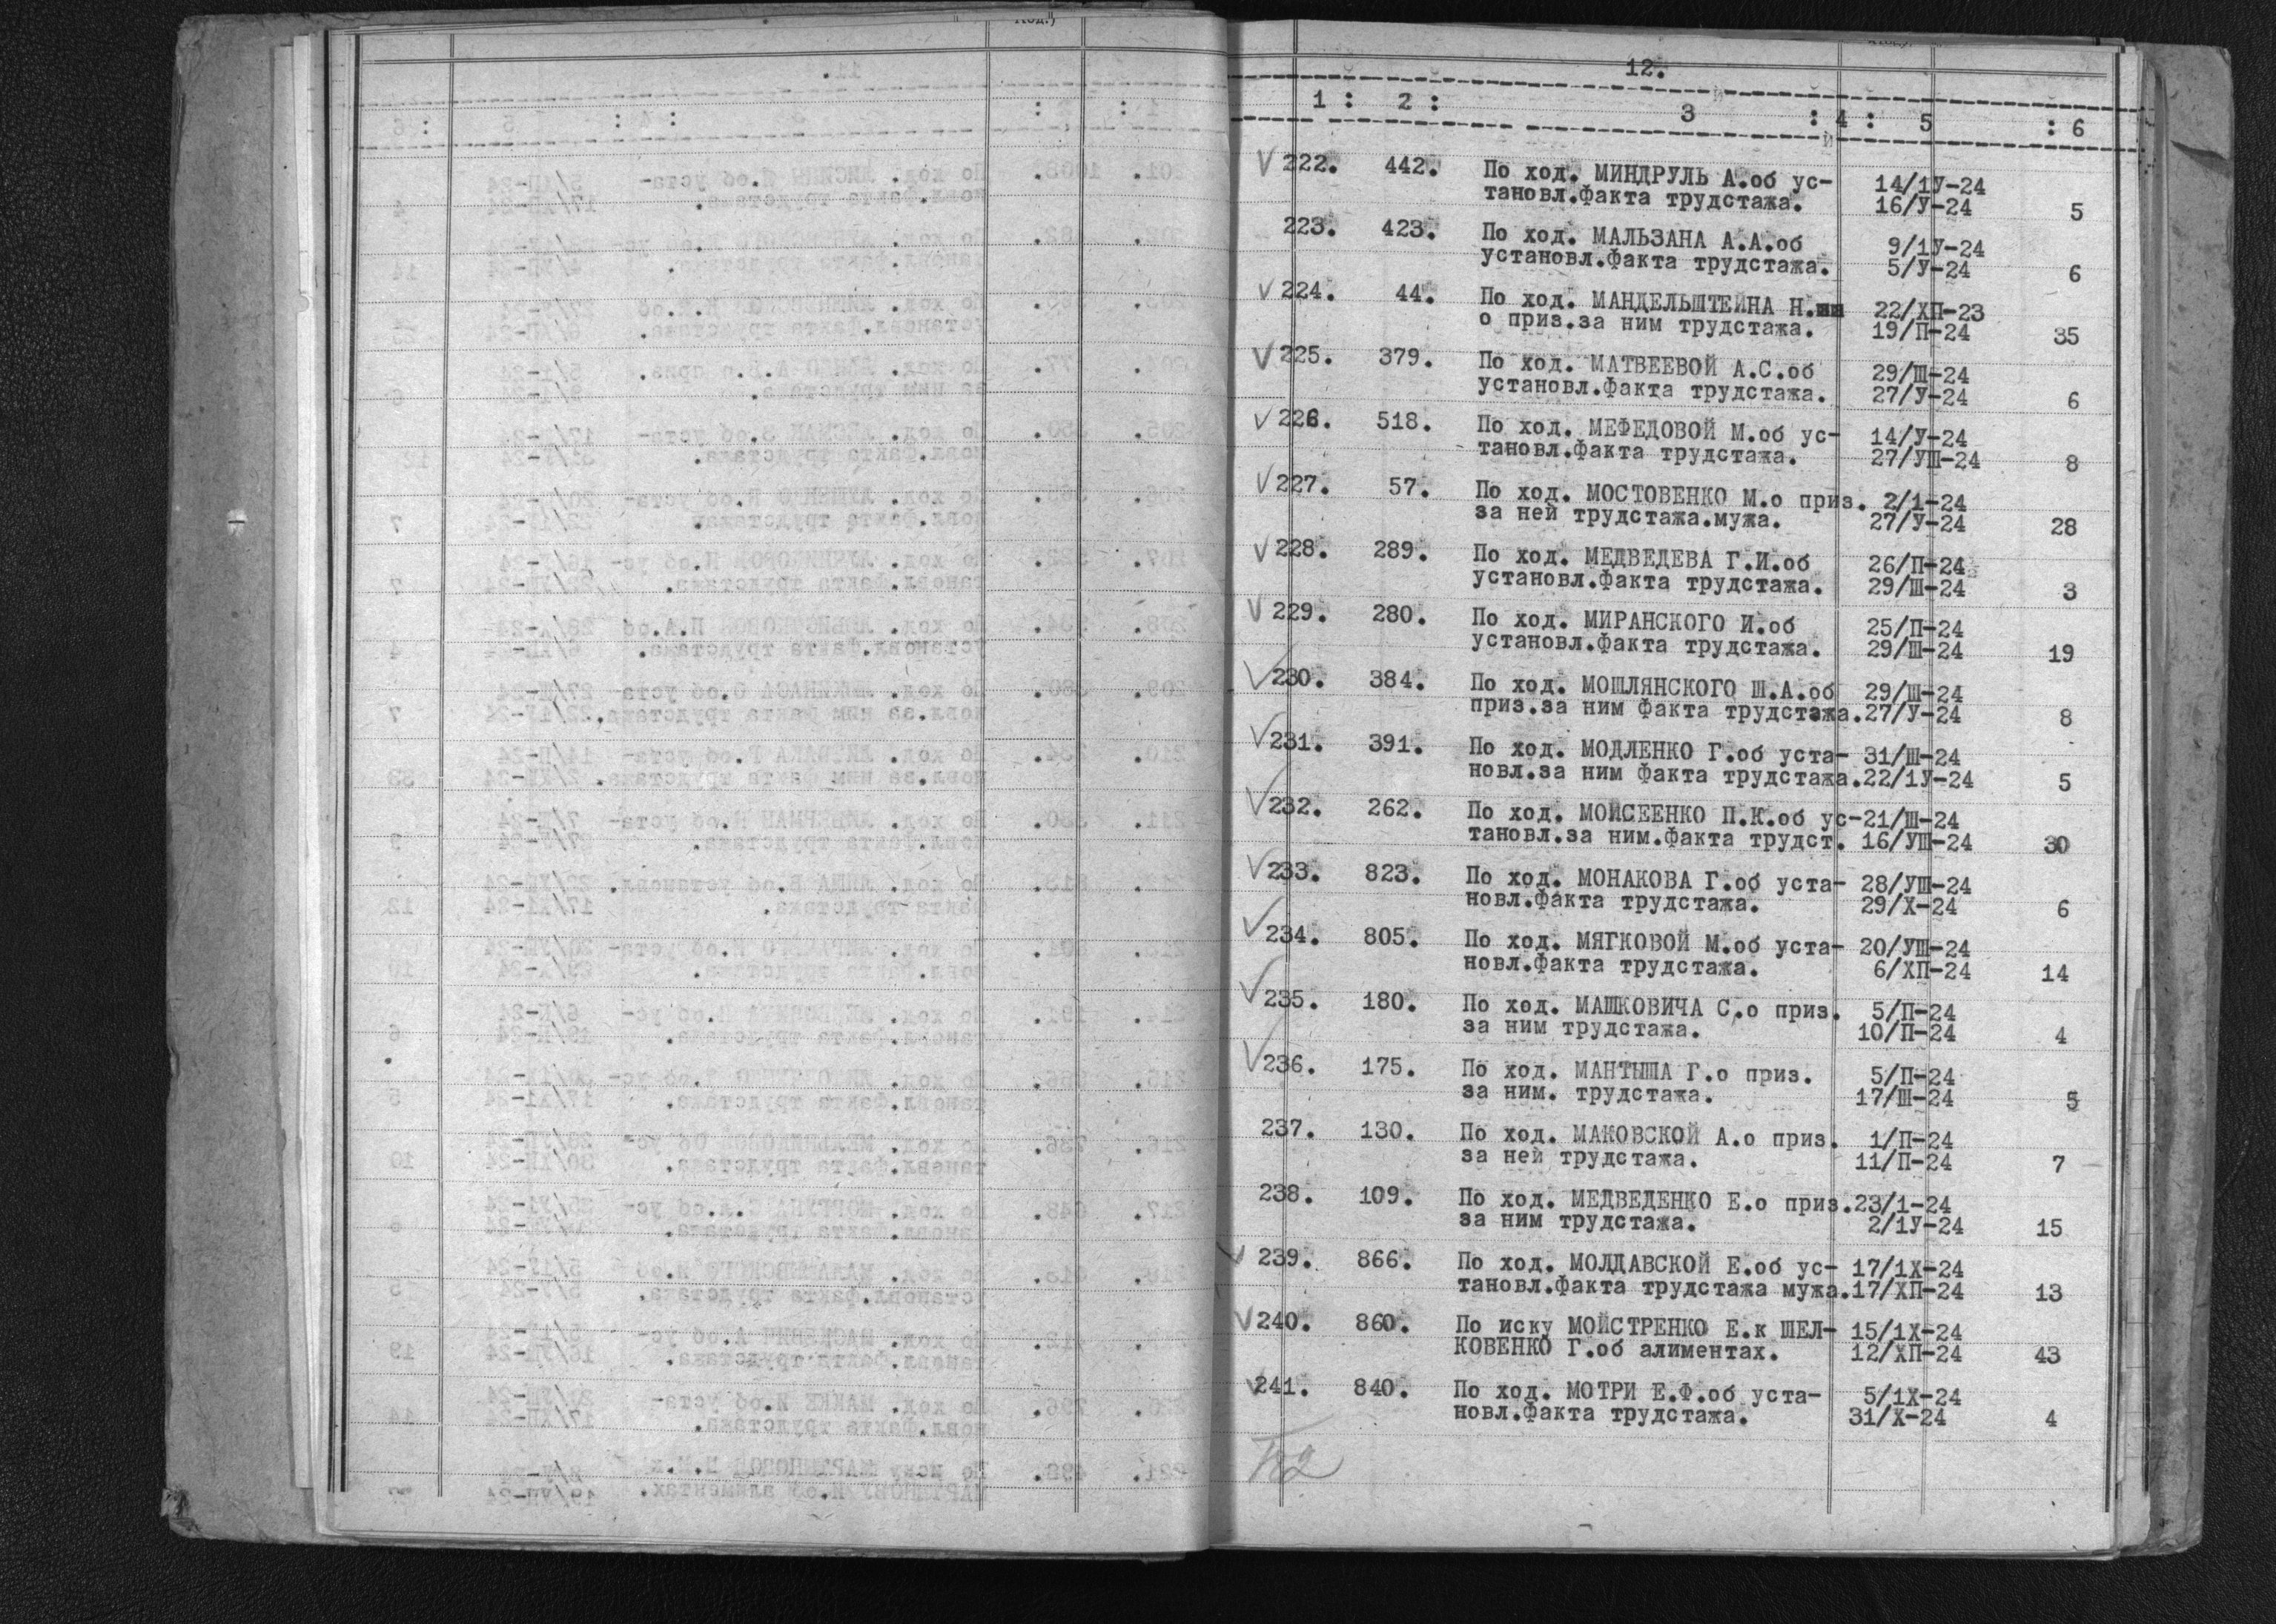 12.
1 : 2 : 3 : 4 : 5 : 6
222. 442. По ход. МИНДРУЛЬ А.об ус- 14/1У-24
тановл.факта трудстажа. 16/У-24 5
223. 423. По ход. МАЛЬЗАНА А.А.об 9/1У-24
установл.факта трудстажа. 5/У-24 6
224. 44. По ход. МАНДЕЛЬШТЕЙНА Н. 22/ХП-23
о приз.за ним трудстажа. 19/П-24 35
225. 379. По ход. МАТВЕЕВОЙ А.С.об 29/Ш-24
установл.факта трудстажа. 27/У-24 6
226. 518. По ход. МЕФЕДОВОЙ М.об ус- 14/У-24
тановл.факта трудстажа. 27/УШ-24 8
227. 57. По ход. МОСТОВЕНКО М.о приз. 2/1-24
за ней трудстажа.мужа. 27/У-24 28
228. 289. По ход. МЕДВЕДЕВА Г.И.об 26/П-24
установл.факта трудстажа. 29/Ш-24 3
229. 280. По ход. МИРАНСКОГО И.об 25/П-24
установл.факта трудстажа. 29/Ш-24 19
230. 384. По ход. МОШЛЯНСКОГО Ш.А.об 29/Ш-24
приз.за ним факта трудстажа.27/У-24 8
231. 391. По ход. МОДЛЕНКО Г.об уста- 31/Ш-24
новл.за ним факта трудстажа.22/1У-24 5
232. 262. По ход. МОЙСЕЕНКО П.К.об ус-21/Ш-24
тановл.за ним.факта трудст. 16/УШ-24 30
233. 823. По ход. МОНАКОВА Г.об уста- 28/УШ-24
новл.факта трудстажа. 29/Х-24 6
234. 805. По ход. МЯГКОВОЙ М.об уста- 20/УШ-24
новл.факта трудстажа. 6/ХП-24 14
235. 180. По ход. МАШКОВИЧА С.о приз. 5/П-24
за ним трудстажа. 10/П-24 4
236. 175. По ход. МАНТЫША Г.о приз. 5/П-24
за ним. трудстажа. 17/Ш-24 5
237. 130. По ход. МАКОВСКОЙ А.о приз. 1/П-24
за ней трудстажа. 11/П-24 7
238. 109. По ход. МЕДВЕДЕНКО Е.о приз.23/1-24
за ним трудстажа. 2/1У-24 15
239. 866. По ход. МОЛДАВСКОЙ Е.об ус- 17/1Х-24
тановл.факта трудстажа мужа.17/ХП-24 13
240. 860. По иску МОЙСТРЕНКО Е.к ШЕЛ- 15/1Х-24
КОВЕНКО Г.об алиментах. 12/ХП-24 43
241. 840. По ход. МОТРИ Е.Ф.об уста- 5/1Х-24
новл.факта трудстажа. 31/Х-24 4